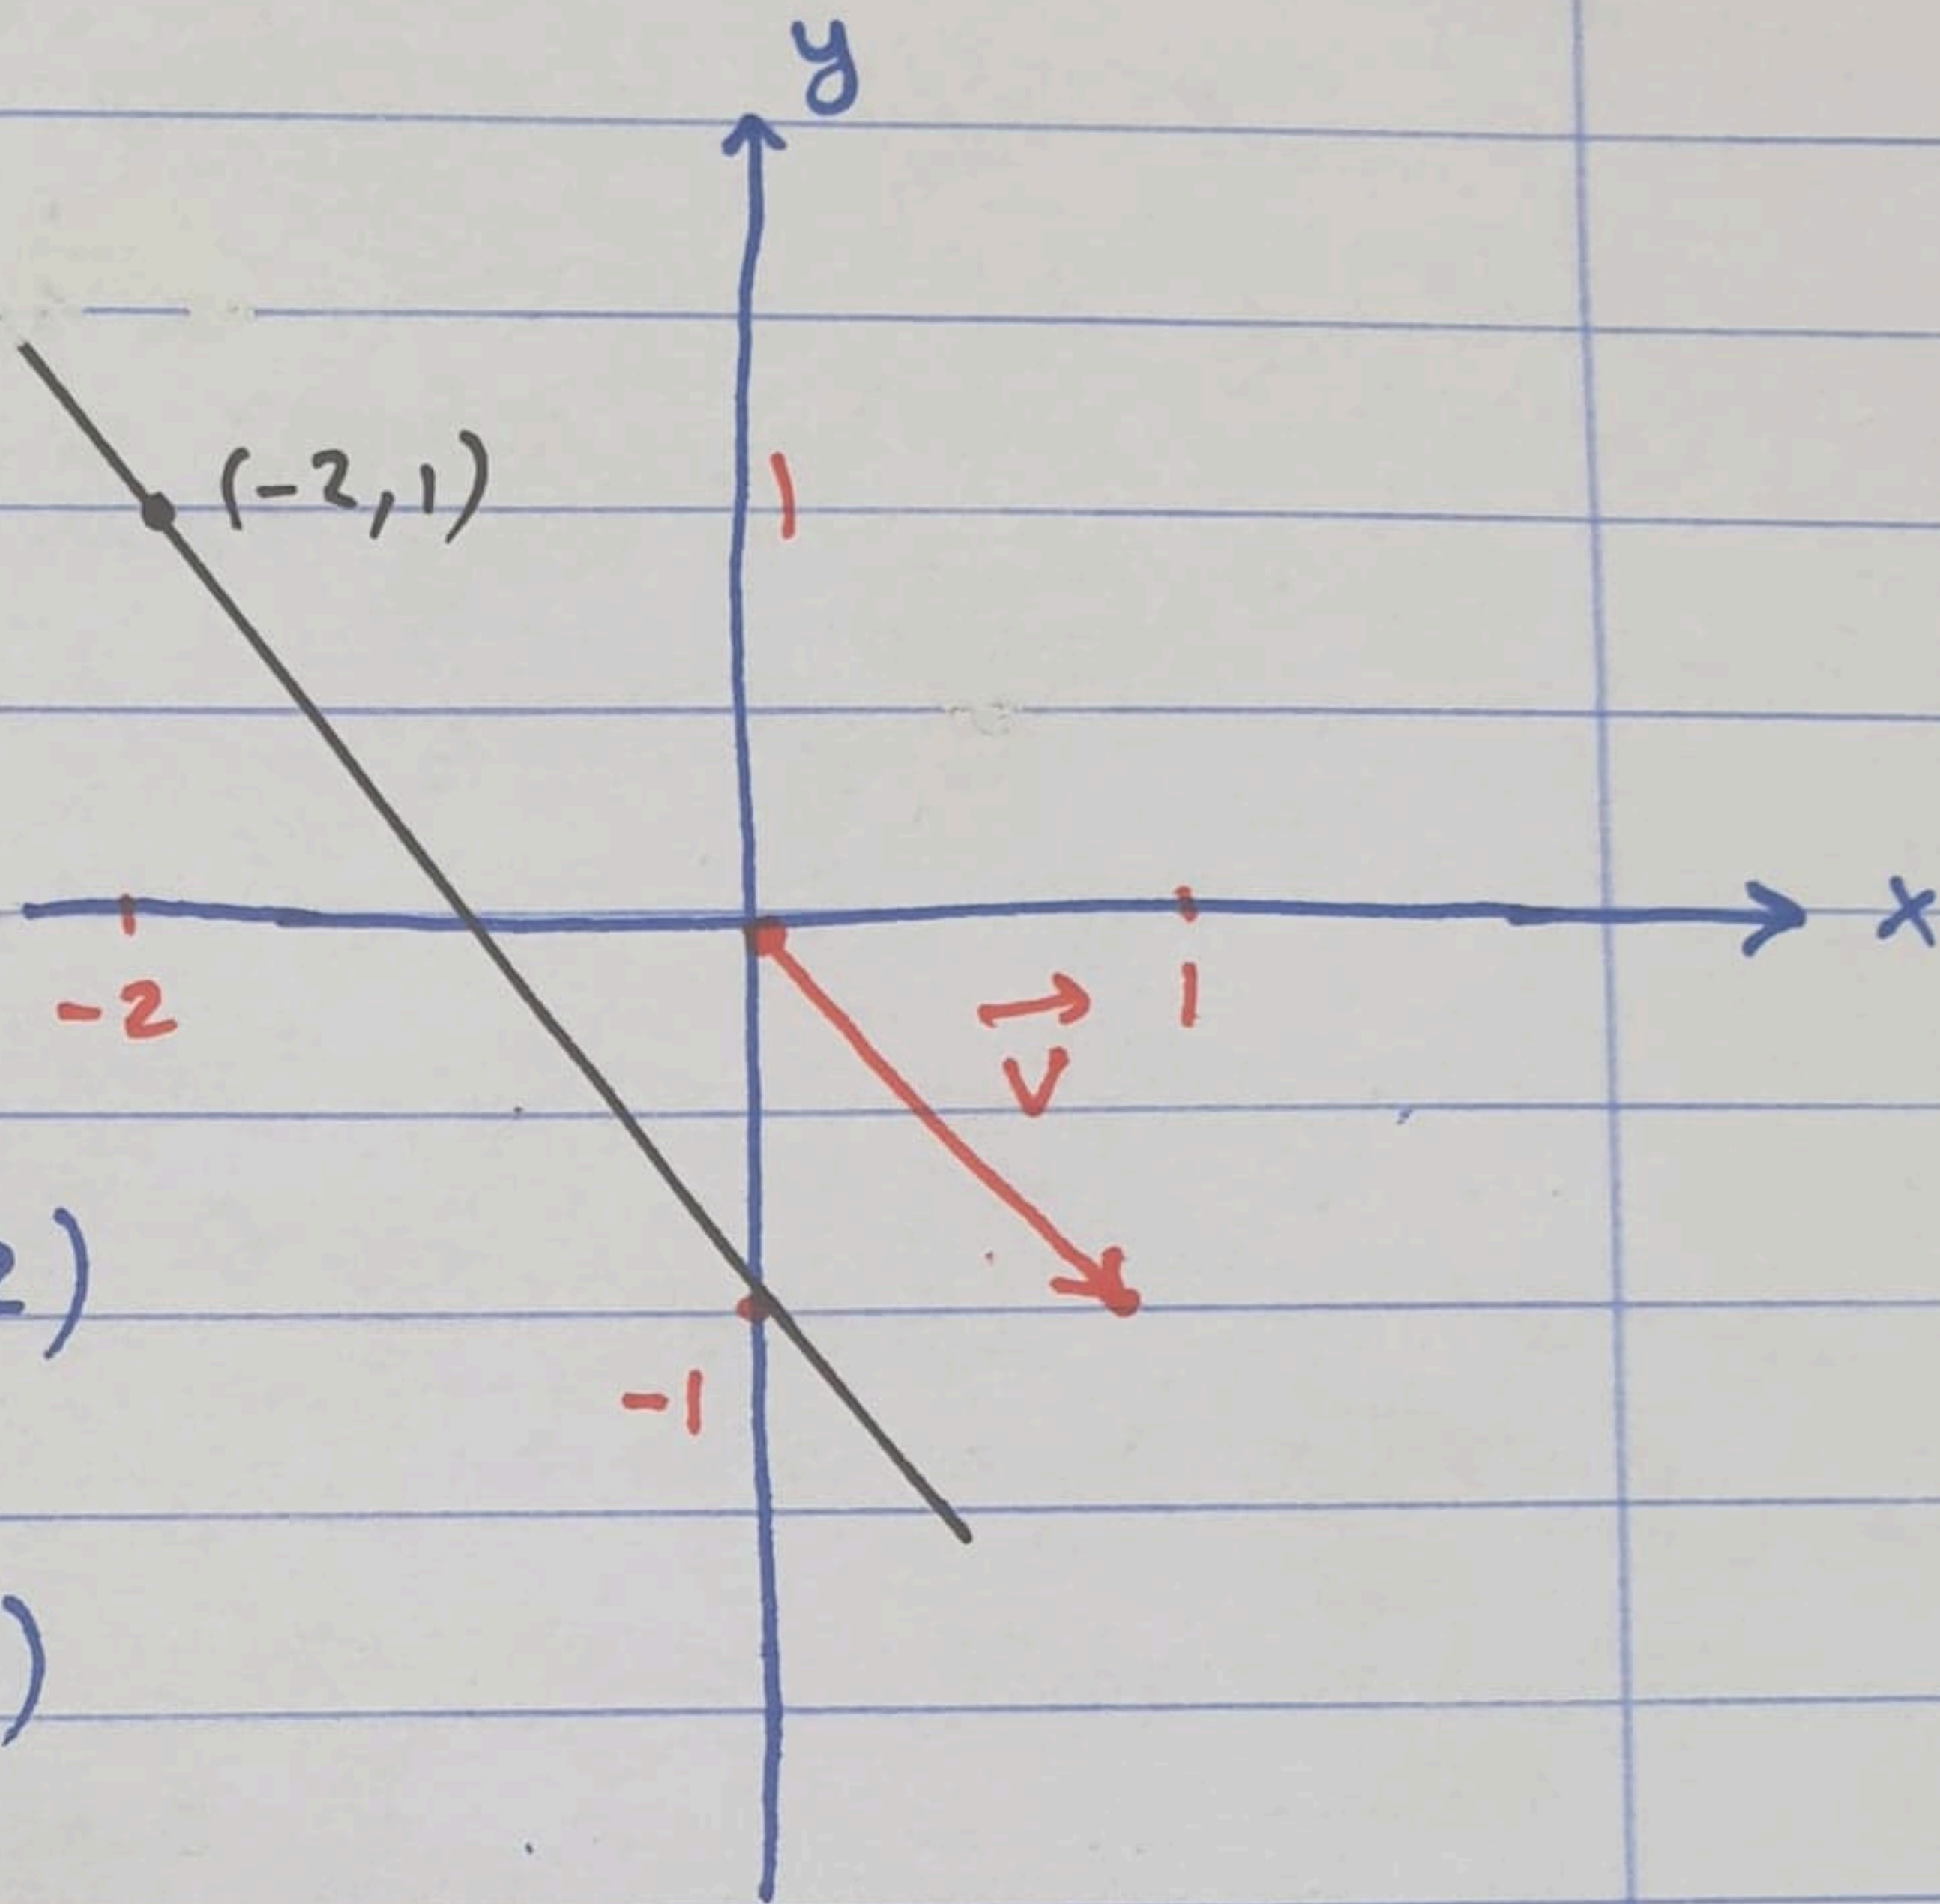 y
(-2,1)
1
x
-2
1
v
2)
-1
)